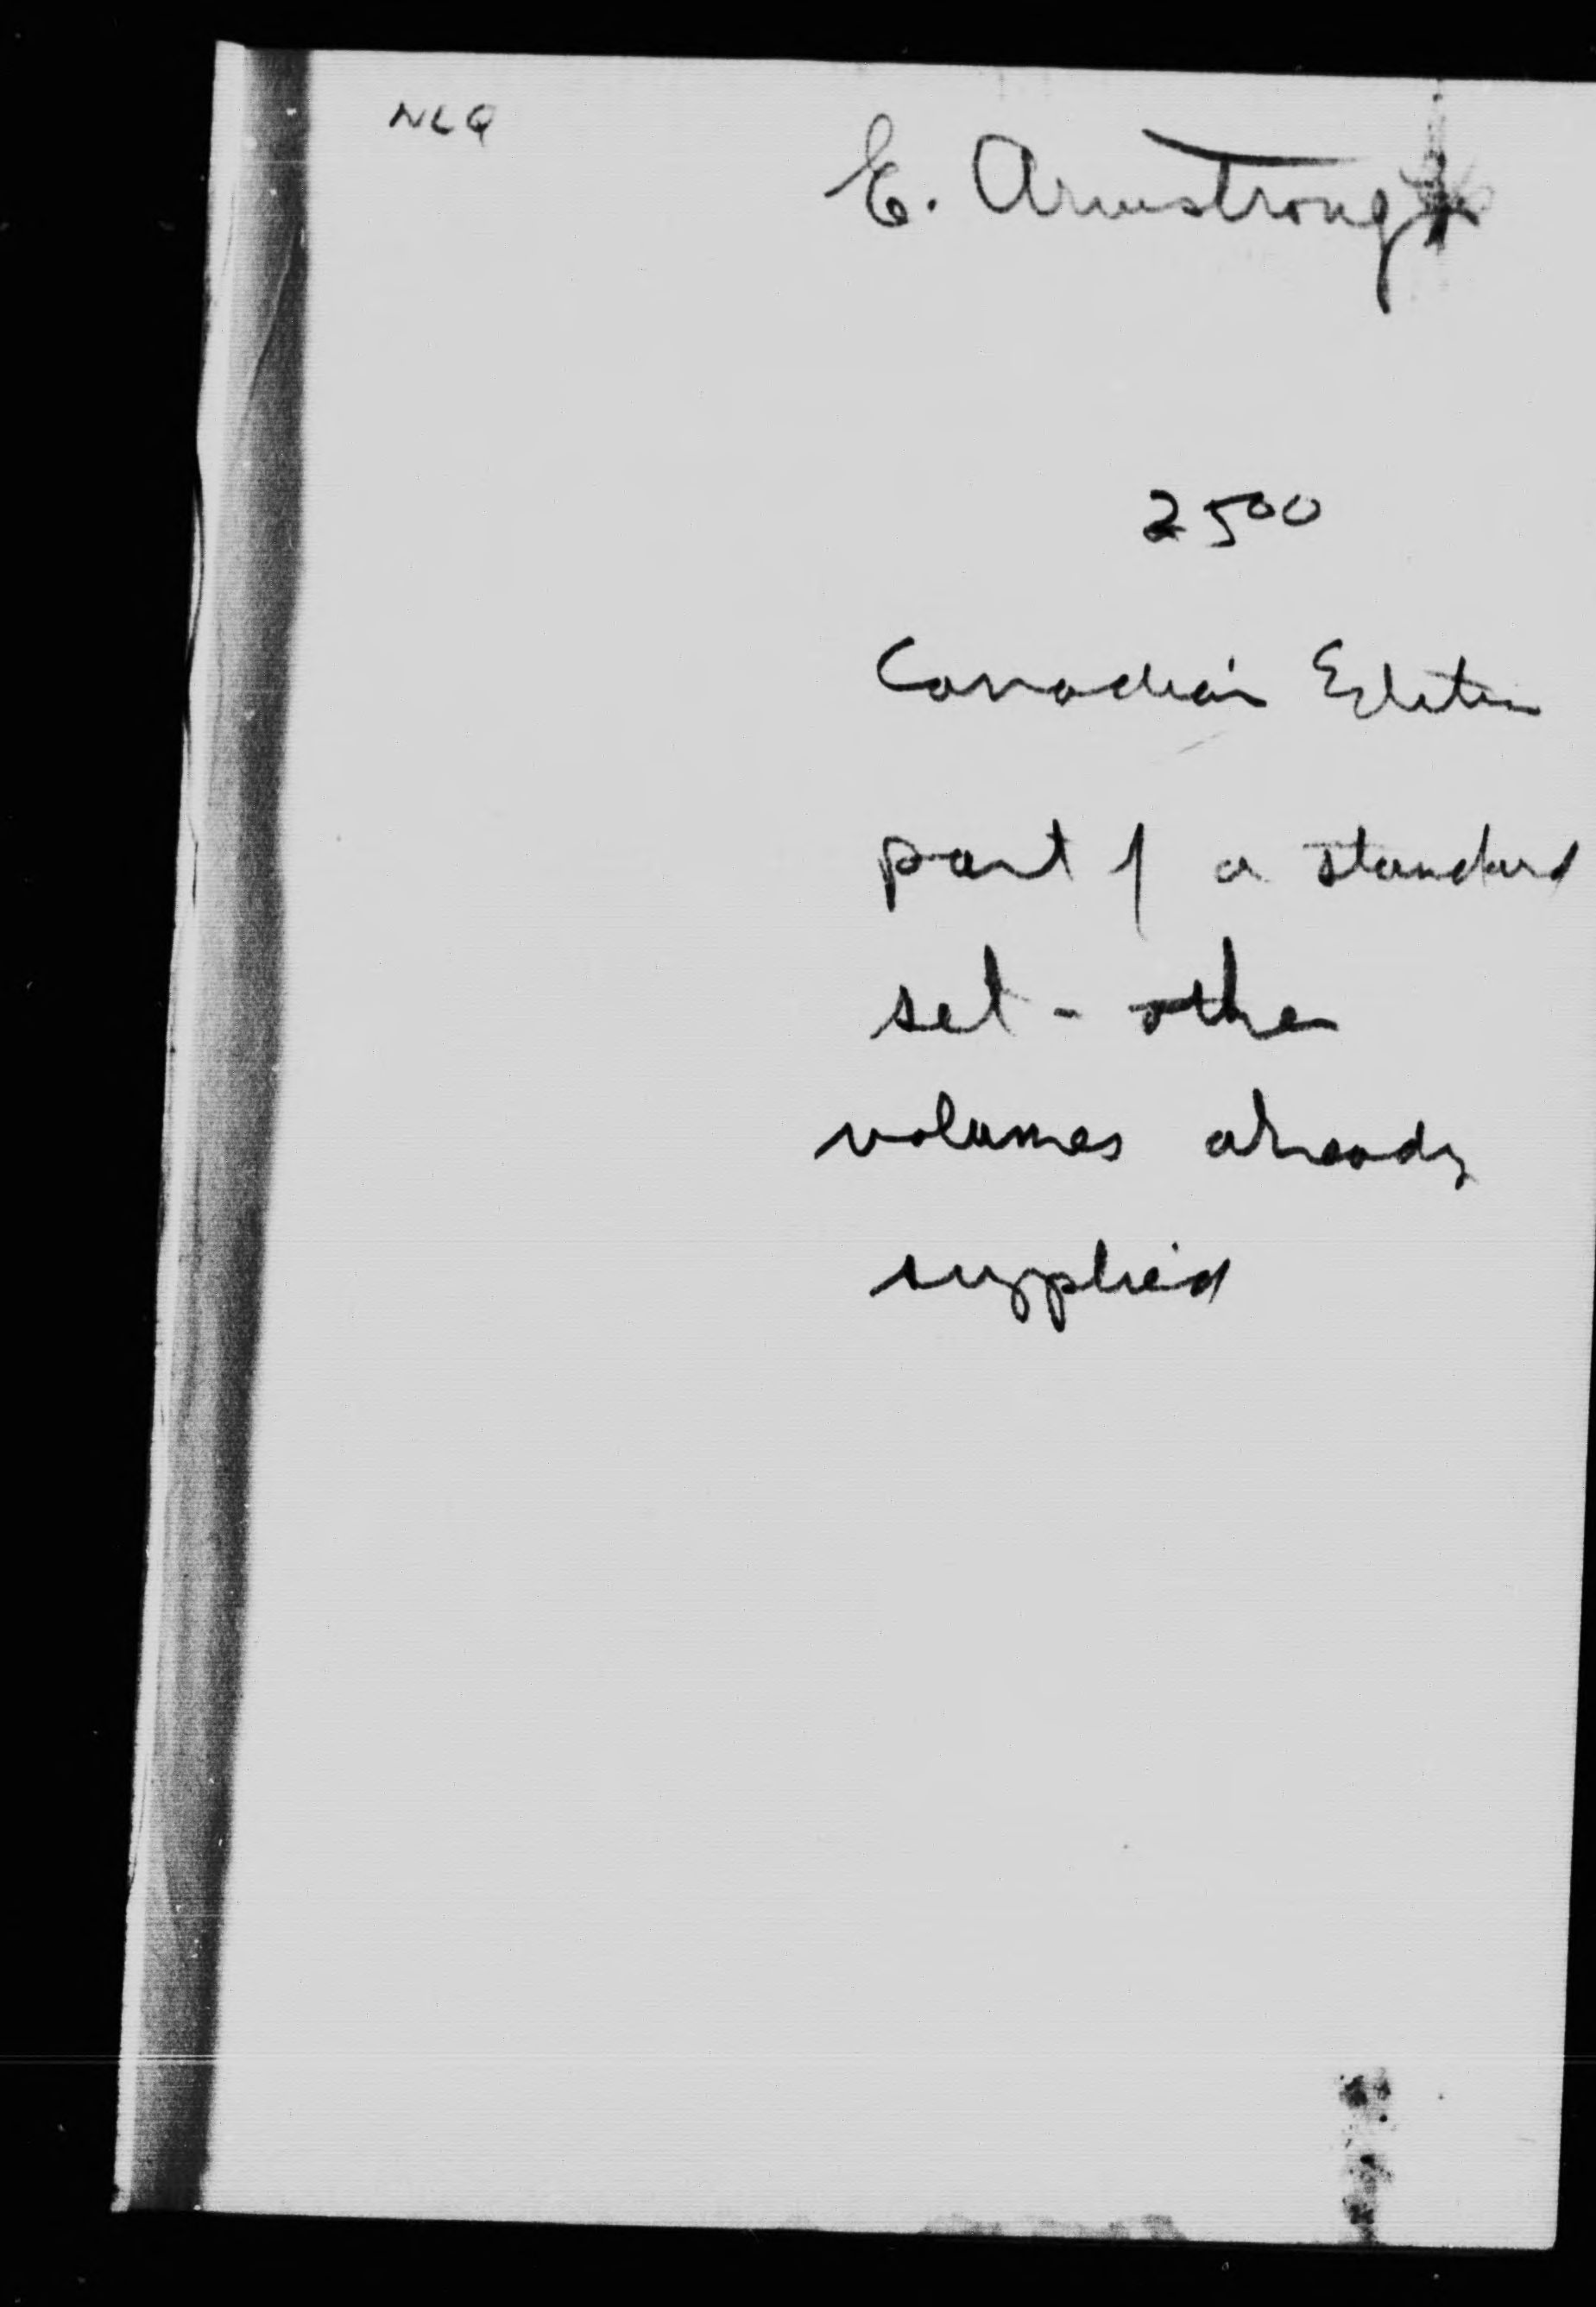 NLQ
E. Armstrong
2500
Canadian Edition
part of a standard
set - other
volumes already
supplied